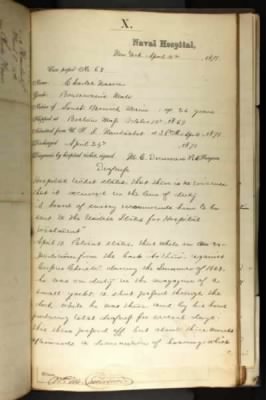 X.
Naval Hospital,
New York April 10th 1871
Case paper No. 68
Name: Charles
Rank: Boatswain's Mate
Native of South Berwick Maine age 26 years
Shipped at Boston Mass October 10th 1869
Admitted from U. S. S. April 1871
Discharged April 24th 1871
Diagnosis by hospital ticket, signed M. C. Drennan P. A. Surgeon
Deafness
Hospital ticket states that there is no evidence
that it occurred in the line of duty
A board of survey recommends him to be
sent to the United States for Hospital
treatment
April 10. Patient states that while on an ex-
pedition from the
during the Summer of 1868.
he was on duty in the magazine of a
small yacht. A shot passed through the
deck while he was there and by his head
producing total deafness for several days.
This then passed off but about three months
afterwards a diminution of hearing, which